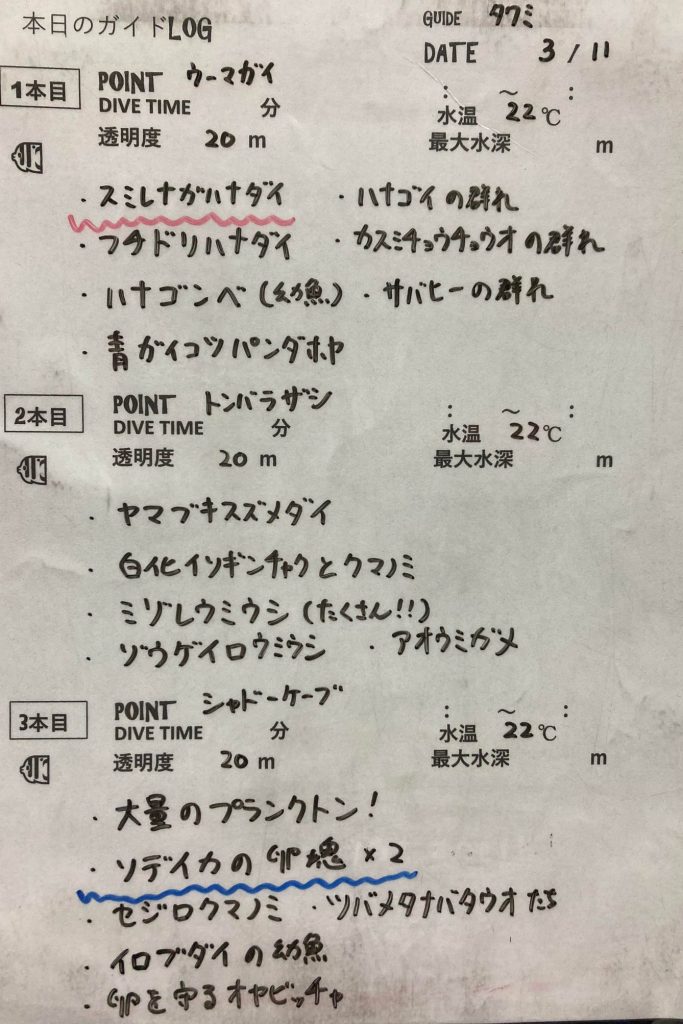 本日のガイドLOG
GUIDE タクミ
DATE 3 / 11
1本目 POINT ウーマガイ : ～ :
DIVE TIME 分 水温 22℃
透明度 20 m 最大水深 m
・スミレナガハナダイ ・ハナゴイの群れ
・フチドリハナダイ ・カスミチョウチョウオの群れ
・ハナゴンベ(幼魚) ・サバヒーの群れ
・青ガイコツパンダホヤ
2本目 POINT トンバラザシ : ～ :
DIVE TIME 分 水温 22℃
透明度 20 m 最大水深 m
・ヤマブキスズメダイ
・白化イソギンチャクとクマノミ
・ミゾレウミウシ(たくさん!!)
・ゾウゲイロウミウシ ・アオウミガメ
3本目 POINT シャドーケーブ : ～ :
DIVE TIME 分 水温 22℃
透明度 20 m 最大水深 m
・大量のプランクトン!
・ソデイカの卵塊×2
・セジロクマノミ ・ツバメタナバタウオたち
・イロブダイの幼魚
・卵を守るオヤビッチャ